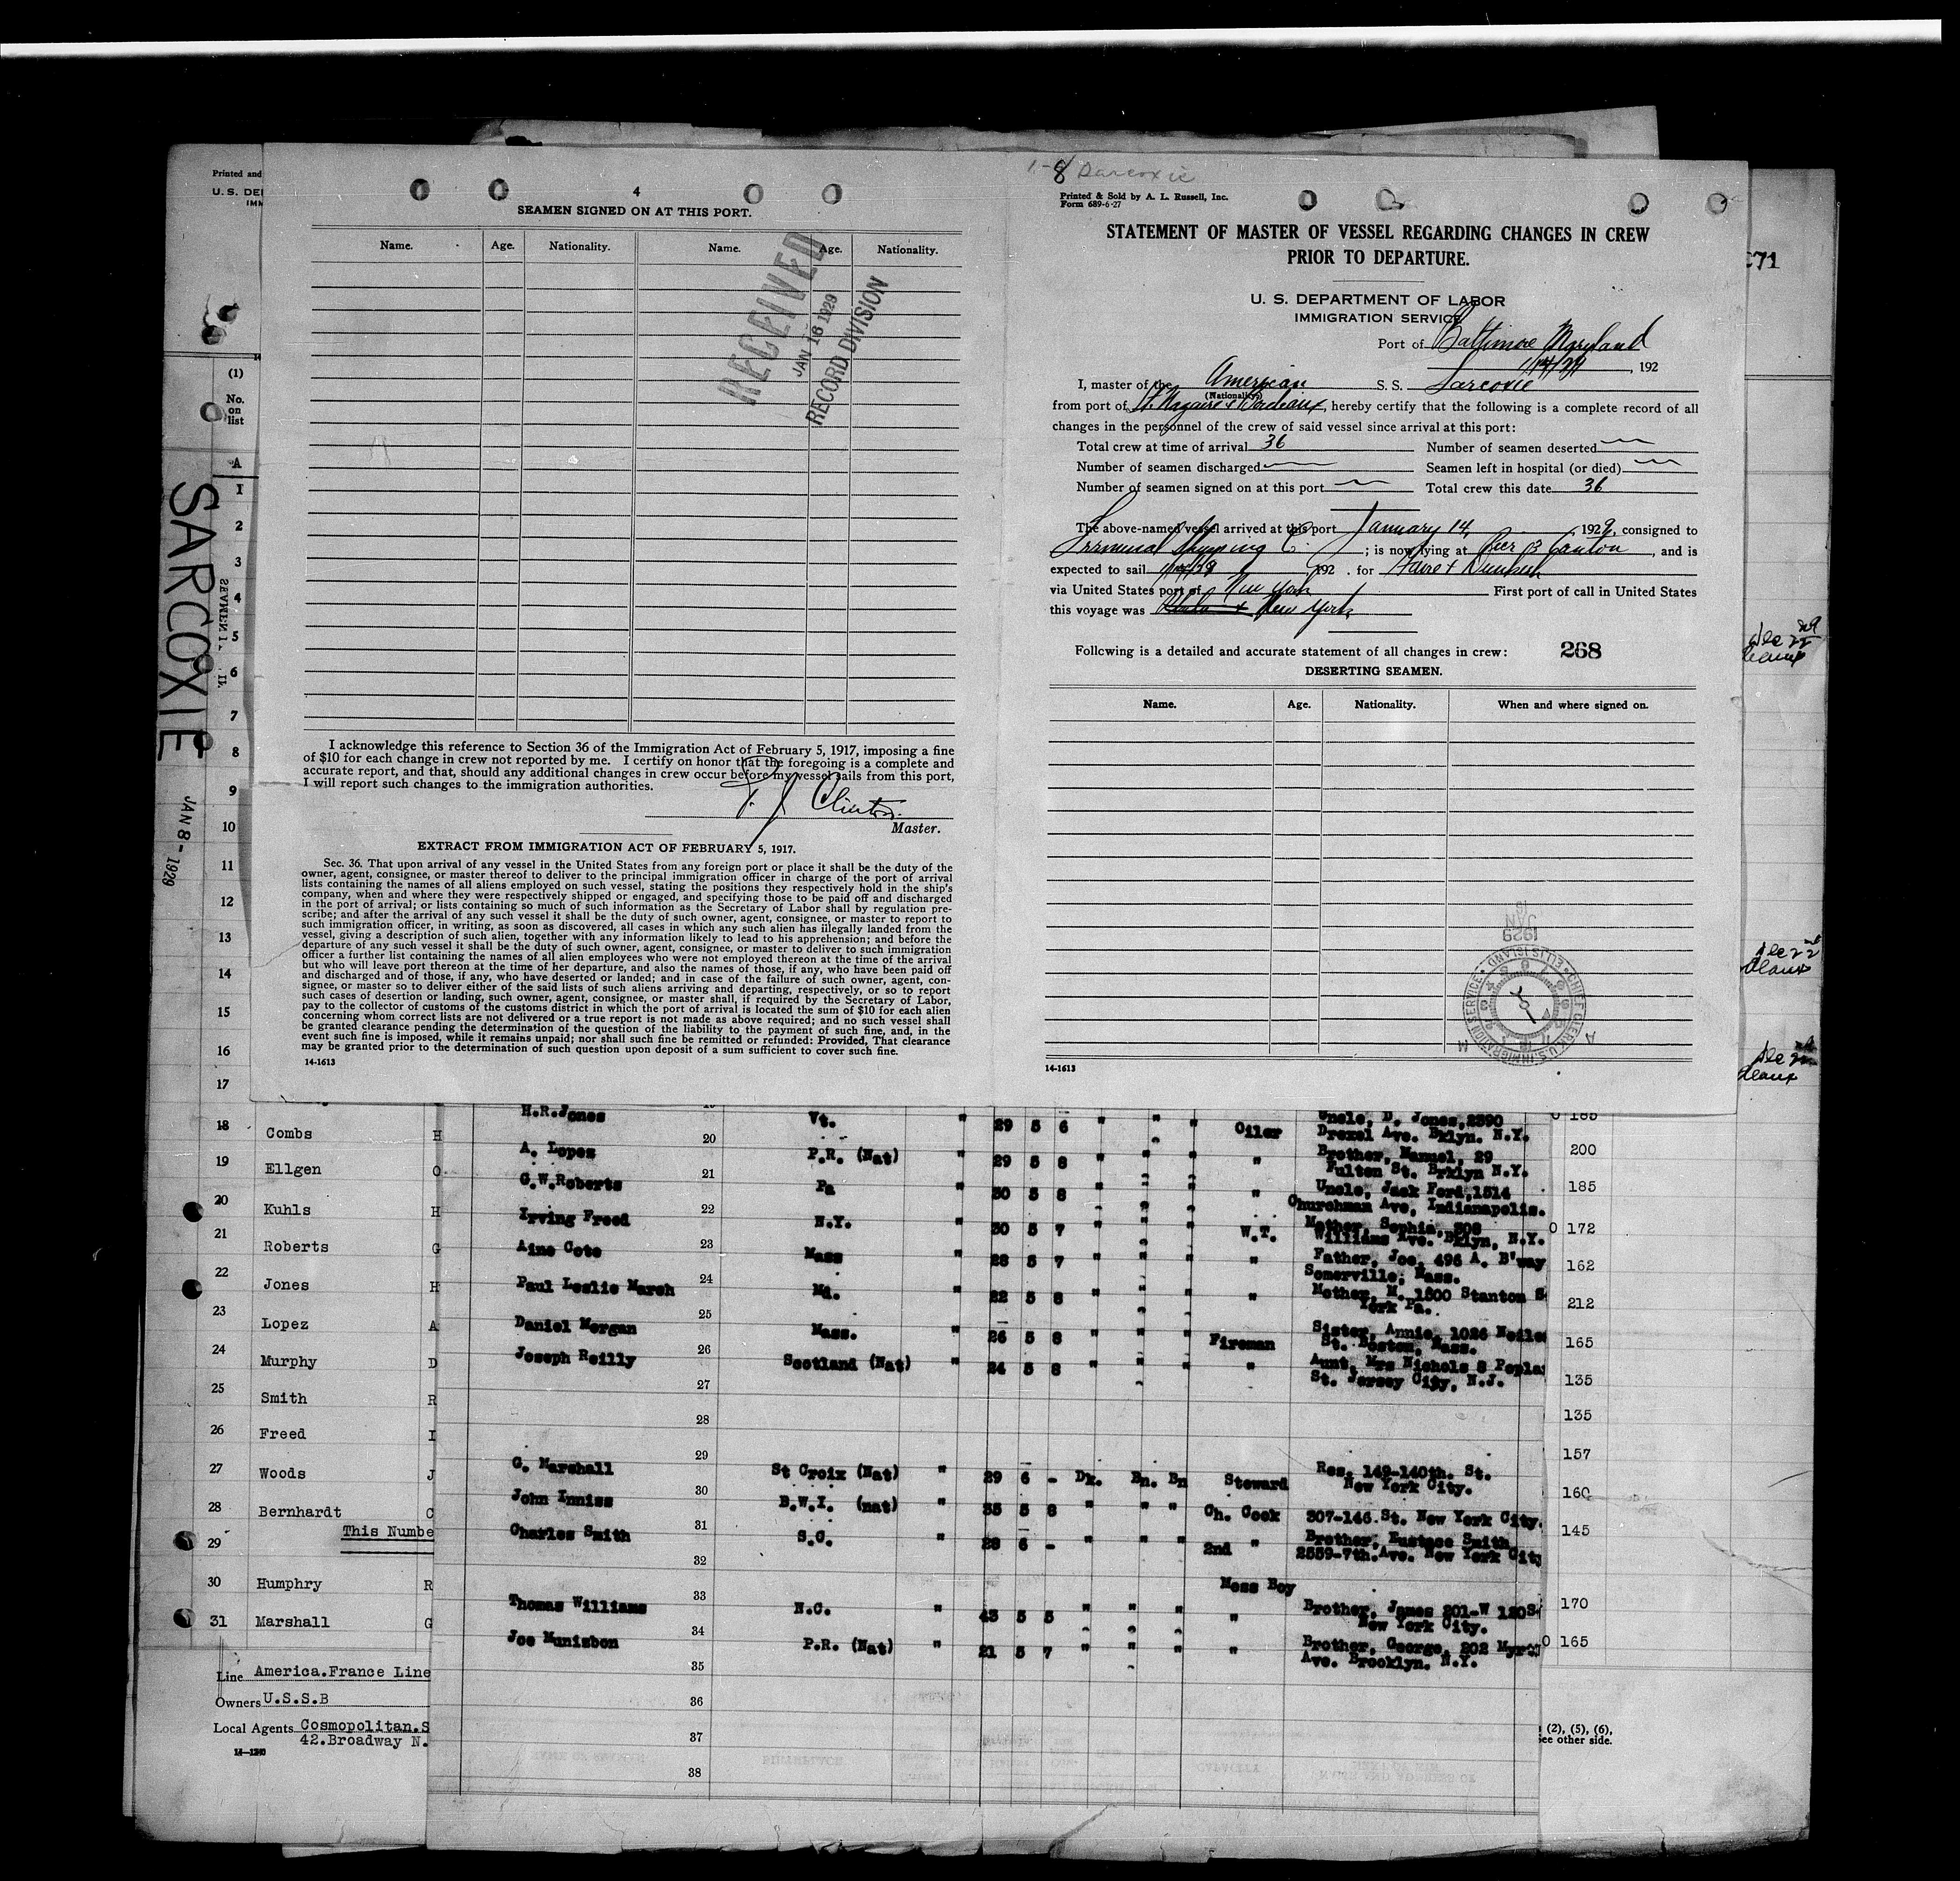 Printed and
U. S. DE
IMM
(1)
No.
on
list
A
SARCOXIE
JAN 8 - 1929
1
2
3
4
5
6
7
8
9
10
11
12
13
14
15
16
17
4
SEAMEN SIGNED ON AT THIS PORT.
Name. Age. Nationality. Name. Age. Nationality.
RECEIVED
JAN 16 1929
RECORD DIVISION
I acknowledge this reference to Section 36 of the Immigration Act of February 5, 1917, imposing a fine
of $10 for each change in crew not reported by me. I certify on honor that the foregoing is a complete and
accurate report, and that, should any additional changes in crew occur before my vessel sails from this port,
I will report such changes to the immigration authorities.
P. J. Clinton
Master.
EXTRACT FROM IMMIGRATION ACT OF FEBRUARY 5, 1917.
Sec. 36. That upon arrival of any vessel in the United States from any foreign port or place it shall be the duty of the
owner, agent, consignee, or master thereof to deliver to the principal immigration officer in charge of the port of arrival
lists containing the names of all aliens employed on such vessel, stating the positions they respectively hold in the ship's
company, when and where they were respectively shipped or engaged, and specifying those to be paid off and discharged
in the port of arrival; or lists containing so much of such information as the Secretary of Labor shall by regulation pre-
scribe; and after the arrival of any such vessel it shall be the duty of such owner, agent, consignee, or master to report to
such immigration officer, in writing, as soon as discovered, all cases in which any such alien has illegally landed from the
vessel, giving a description of such alien, together with any information likely to lead to his apprehension; and before the
departure of any such vessel it shall be the duty of such owner, agent, consignee, or master to deliver to such immigration
officer a further list containing the names of all alien employees who were not employed thereon at the time of the arrival
but who will leave port thereon at the time of her departure, and also the names of those, if any, who have been paid off
and discharged and of those, if any, who have deserted or landed; and in case of the failure of such owner, agent, con-
signee, or master so to deliver either of the said lists of such aliens arriving and departing, respectively, or so to report
such cases of desertion or landing, such owner, agent, consignee, or master shall, if required by the Secretary of Labor,
pay to the collector of customs of the customs district in which the port of arrival is located the sum of $10 for each alien
concerning whom correct lists are not delivered or a true report is not made as above required; and no such vessel shall
be granted clearance pending the determination of the question of the liability to the payment of such fine, and, in the
event such fine is imposed, while it remains unpaid; nor shall such fine be remitted or refunded: Provided, That clearance
may be granted prior to the determination of such question upon deposit of a sum sufficient to cover such fine.
14-1613
1-8 Sarcoxie
Printed & Sold by A. L. Russell, Inc.
Form 689-6-27
STATEMENT OF MASTER OF VESSEL REGARDING CHANGES IN CREW
PRIOR TO DEPARTURE.
U. S. DEPARTMENT OF LABOR
IMMIGRATION SERVICE
Port of Baltimore Maryland
1/14/29, 192
I, master of the American S. S. Sarcoxie
(Nationality)
from port of St. Nazaire & Bordeaux, hereby certify that the following is a complete record of all
changes in the personnel of the crew of said vessel since arrival at this port:
Total crew at time of arrival 36 Number of seamen deserted
Number of seamen discharged Seamen left in hospital (or died)
Number of seamen signed on at this port Total crew this date 36
The above-named vessel arrived at this port January 14, 1929, consigned to
Terminal Shipping Co. ; is now lying at Pier 3 Canton, and is
expected to sail 192 . for Havre & Dunkirk
via United States port of New York First port of call in United States
this voyage was New York
Following is a detailed and accurate statement of all changes in crew: 268
DESERTING SEAMEN.
Name. Age. Nationality. When and where signed on.
CHIEF CLERK U.S. IMMIGRATION SERVICE ELLIS ISLAND
JAN 1929
14-1613
271
Dec 22
Dec 22
18 Combs H
19 Ellgen O
20 Kuhls H
21 Roberts G
22 Jones H
23 Lopez A
24 Murphy D
25 Smith R
26 Freed I
27 Woods J
28 Bernhardt C
This Numbe
29
30 Humphry R
31 Marshall G
Line America.France Line
Owners U.S.S.B
Local Agents Cosmopolitan.S
42.Broadway N.
14-1240
H.R.Jones Vt. " 29 5 6 " " " Oiler Uncle, D. Jones,2390
Drexel Ave. Bklyn. N.Y.
20 A. Lopez P.R. (Nat) " 29 5 8 " " " " Brother, Manuel, 29
Fulton St. Brklyn N.Y. 200
21 G.W.Roberts Pa " 30 5 8 " " " " Uncle, Jack Ford,1514
Churchman Ave, Indianapolis. 185
22 Irving Freed N.Y. " 30 5 7 " " " W.T. Mother, Sophia, 308
Williams Ave. Bklyn, N.Y. 172
23 Aime Cote Mass " 28 5 7 " " " " Father, Joe, 496 A. B'way
Somerville, Mass. 162
24 Paul Leslie March Md. " 22 5 8 " " " " Mother, M. 1800 Stanton S
York Pa. 212
25 Daniel Morgan Mass. " 26 5 8 " " " Fireman Sister, Annie, 1026
St. Boston, Mass. 165
26 Joseph Reilly Scotland (Nat) " 24 5 8 " " " " Aunt, Mrs Nichols 8 Popla
St. Jersey City, N.J. 135
27
28 135
29 G. Marshall St Croix (Nat) " 29 6 - Dk. Bn. Bn Steward Res. 149-140th. St.
New York City. 157
30 John Inniss B.W.I. (nat) " 35 5 8 " " " Ch. Cook 307-146.St. New York City. 160
31 Charles Smith S.C. " 28 6 - " " " 2nd " Brother, Eustace Smith
2559-7th.Ave. New York City 145
32
Mess Boy
33 Thomas Williams N.C. " 43 5 5 " " " " Brother, James 201-W 120S
New York City. 170
34 Joe Munisbon P.R. (Nat) " 21 5 7 " " " " Brother, George, 202
Ave. Brooklyn. N.Y. 165
35
36
37
38
(2), (5), (6),
See other side.